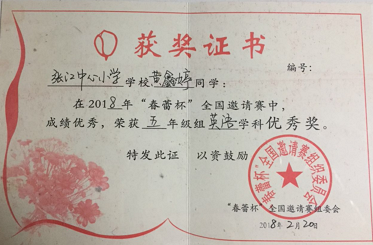 获奖证书
编号：
张江中心小学学校黄鑫婷同学：
在2018年“春蕾杯”全国邀请赛中，
成绩优秀，荣获五年级组英语学科优秀奖。
特发此证 以资鼓励
“春蕾杯”全国邀请赛组织委员会
“春蕾杯”全国邀请赛组委会
2018年2月20日